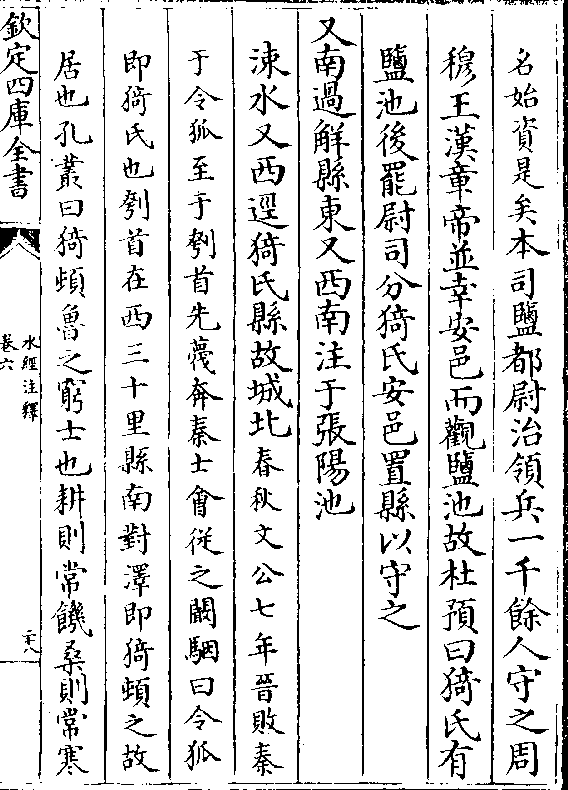 名始資是矣本司鹽都尉治領兵一千餘人守之周
穆王漢章帝並幸安邑而觀鹽池故杜預曰猗氏有
鹽池後罷尉司分猗氏安邑置縣以守之
又南過解縣東又西南注于張陽池
涑水又西逕猗氏縣故城北春秋文公七年晉敗秦
于令狐至于刳首先蔑奔秦士會從之闞駰曰令狐
即猗氏也刳首在西三十里縣南對澤即猗頓之故
居也孔叢曰猗頓魯之窮士也耕則常饑桑則常寒
欽定四庫全書
水經注釋
卷六
三十八